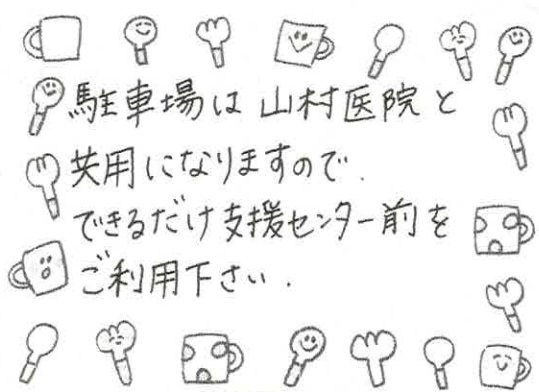 駐車場は山村医院と
共用になりますので.
できるだけ支援センター前を
ご利用下さい.